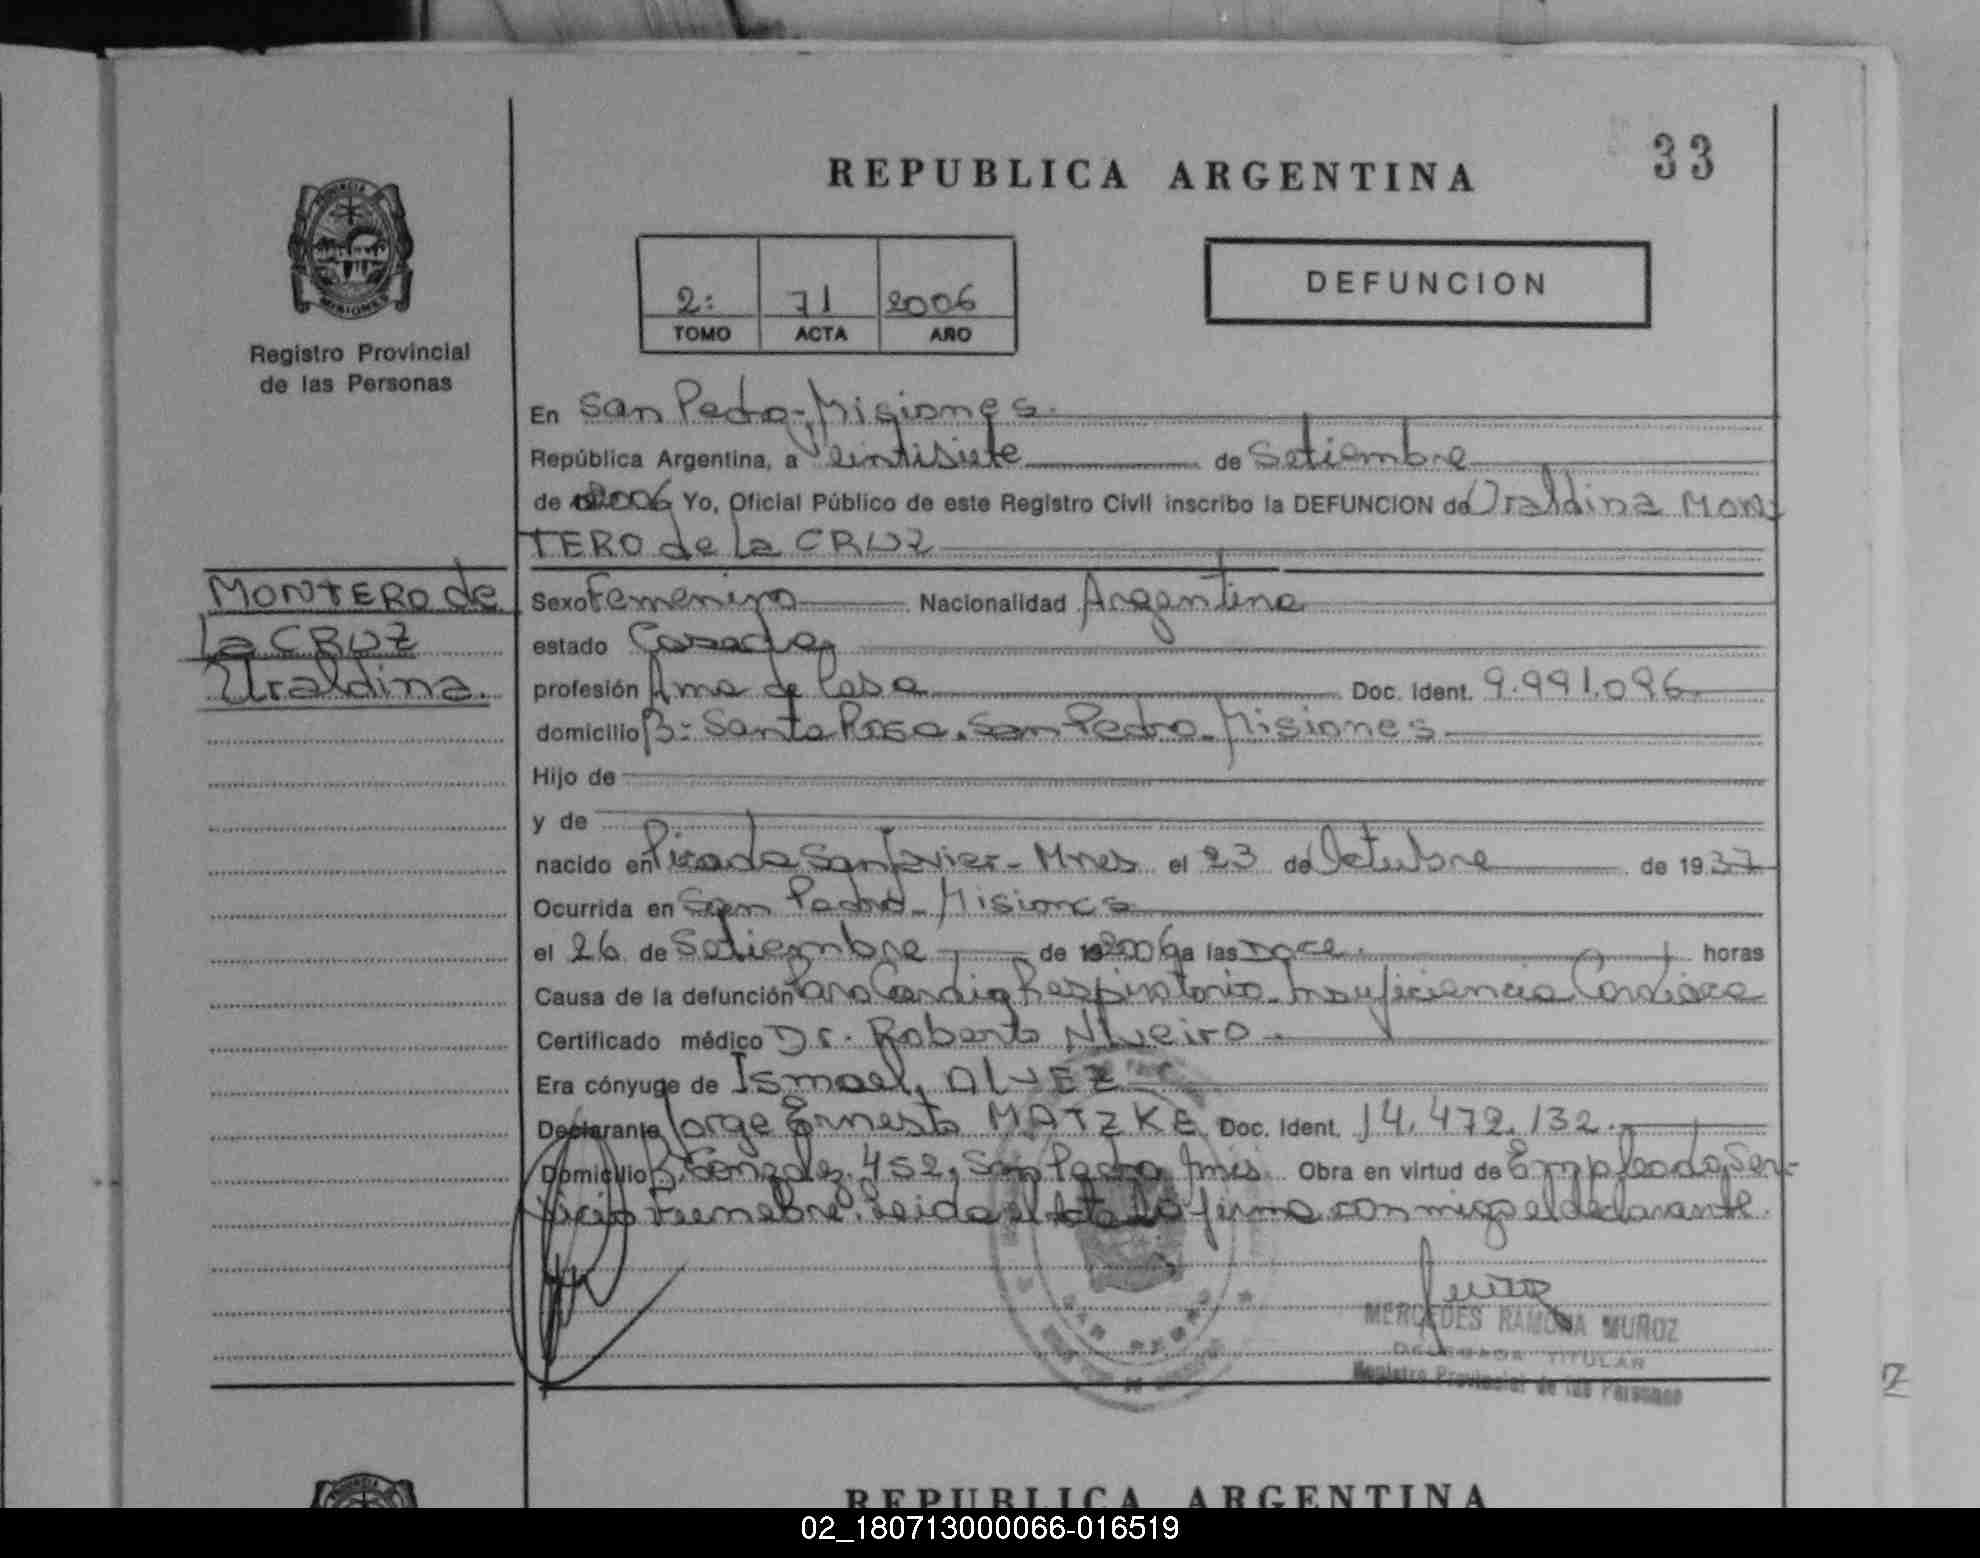 REPUBLICA ARGENTINA
33
DEFUNCION
2: 71 2006
TOMO ACTA AÑO
Registro Provincial
de las Personas
MISIONES
En San Pedro-Misiones.
República Argentina, a Veintisiete de Setiembre
de 2006 Yo, Oficial Público de este Registro Civil inscribo la DEFUNCION de Uraldina MON-
TERO de la CRUZ
MONTERO de
la CRUZ
Uraldina.
Sexo Femenino Nacionalidad Argentina
estado Casada
profesión Ama de Casa Doc. Ident. 9.991.096.
domicilio B: Santa Rosa. San Pedro-Misiones.
Hijo de
y de
nacido en Picada San Javier-Mnes. el 23 de Octubre de 1937
Ocurrida en San Pedro-Misiones
el 26 de Setiembre de 2006 a las Doce. horas
Causa de la defunción Paro Cardio Respiratorio-Insuficiencia Cardiaca
Certificado médico Dr. Roberto
Era cónyuge de Ismael, ALVEZ
Declarante Jorge Ernesto MATZKE Doc. Ident. 14.472.132.
Domicilio 452, San Pedro Obra en virtud de Empleado Ser-
vicio Funebre. Leida el Acta la firma conmigo el declarante.
SAN PEDRO
MERCEDES RAMONA MUÑOZ
DELEGADA TITULAR
Registro Provincial de las Personas
2
REPUBLICA ARGENTINA
02_180713000066-016519